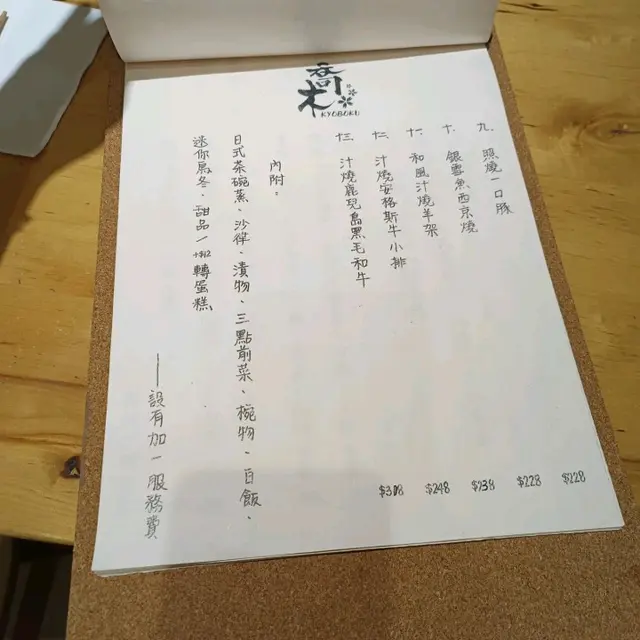 喬木
KYOBOKU
九、照燒一口豚 $228
十、銀雪魚西京燒 $228
十一、和風汁燒羊架 $238
十二、汁燒安格斯牛小排 $248
十三、汁燒鹿兒島黑毛和牛 $308
內附：
日式茶碗蒸、沙律、漬物、三點前菜、椀物、白飯、
迷你烏冬、甜品/+$12轉蛋糕
——設有加一服務費